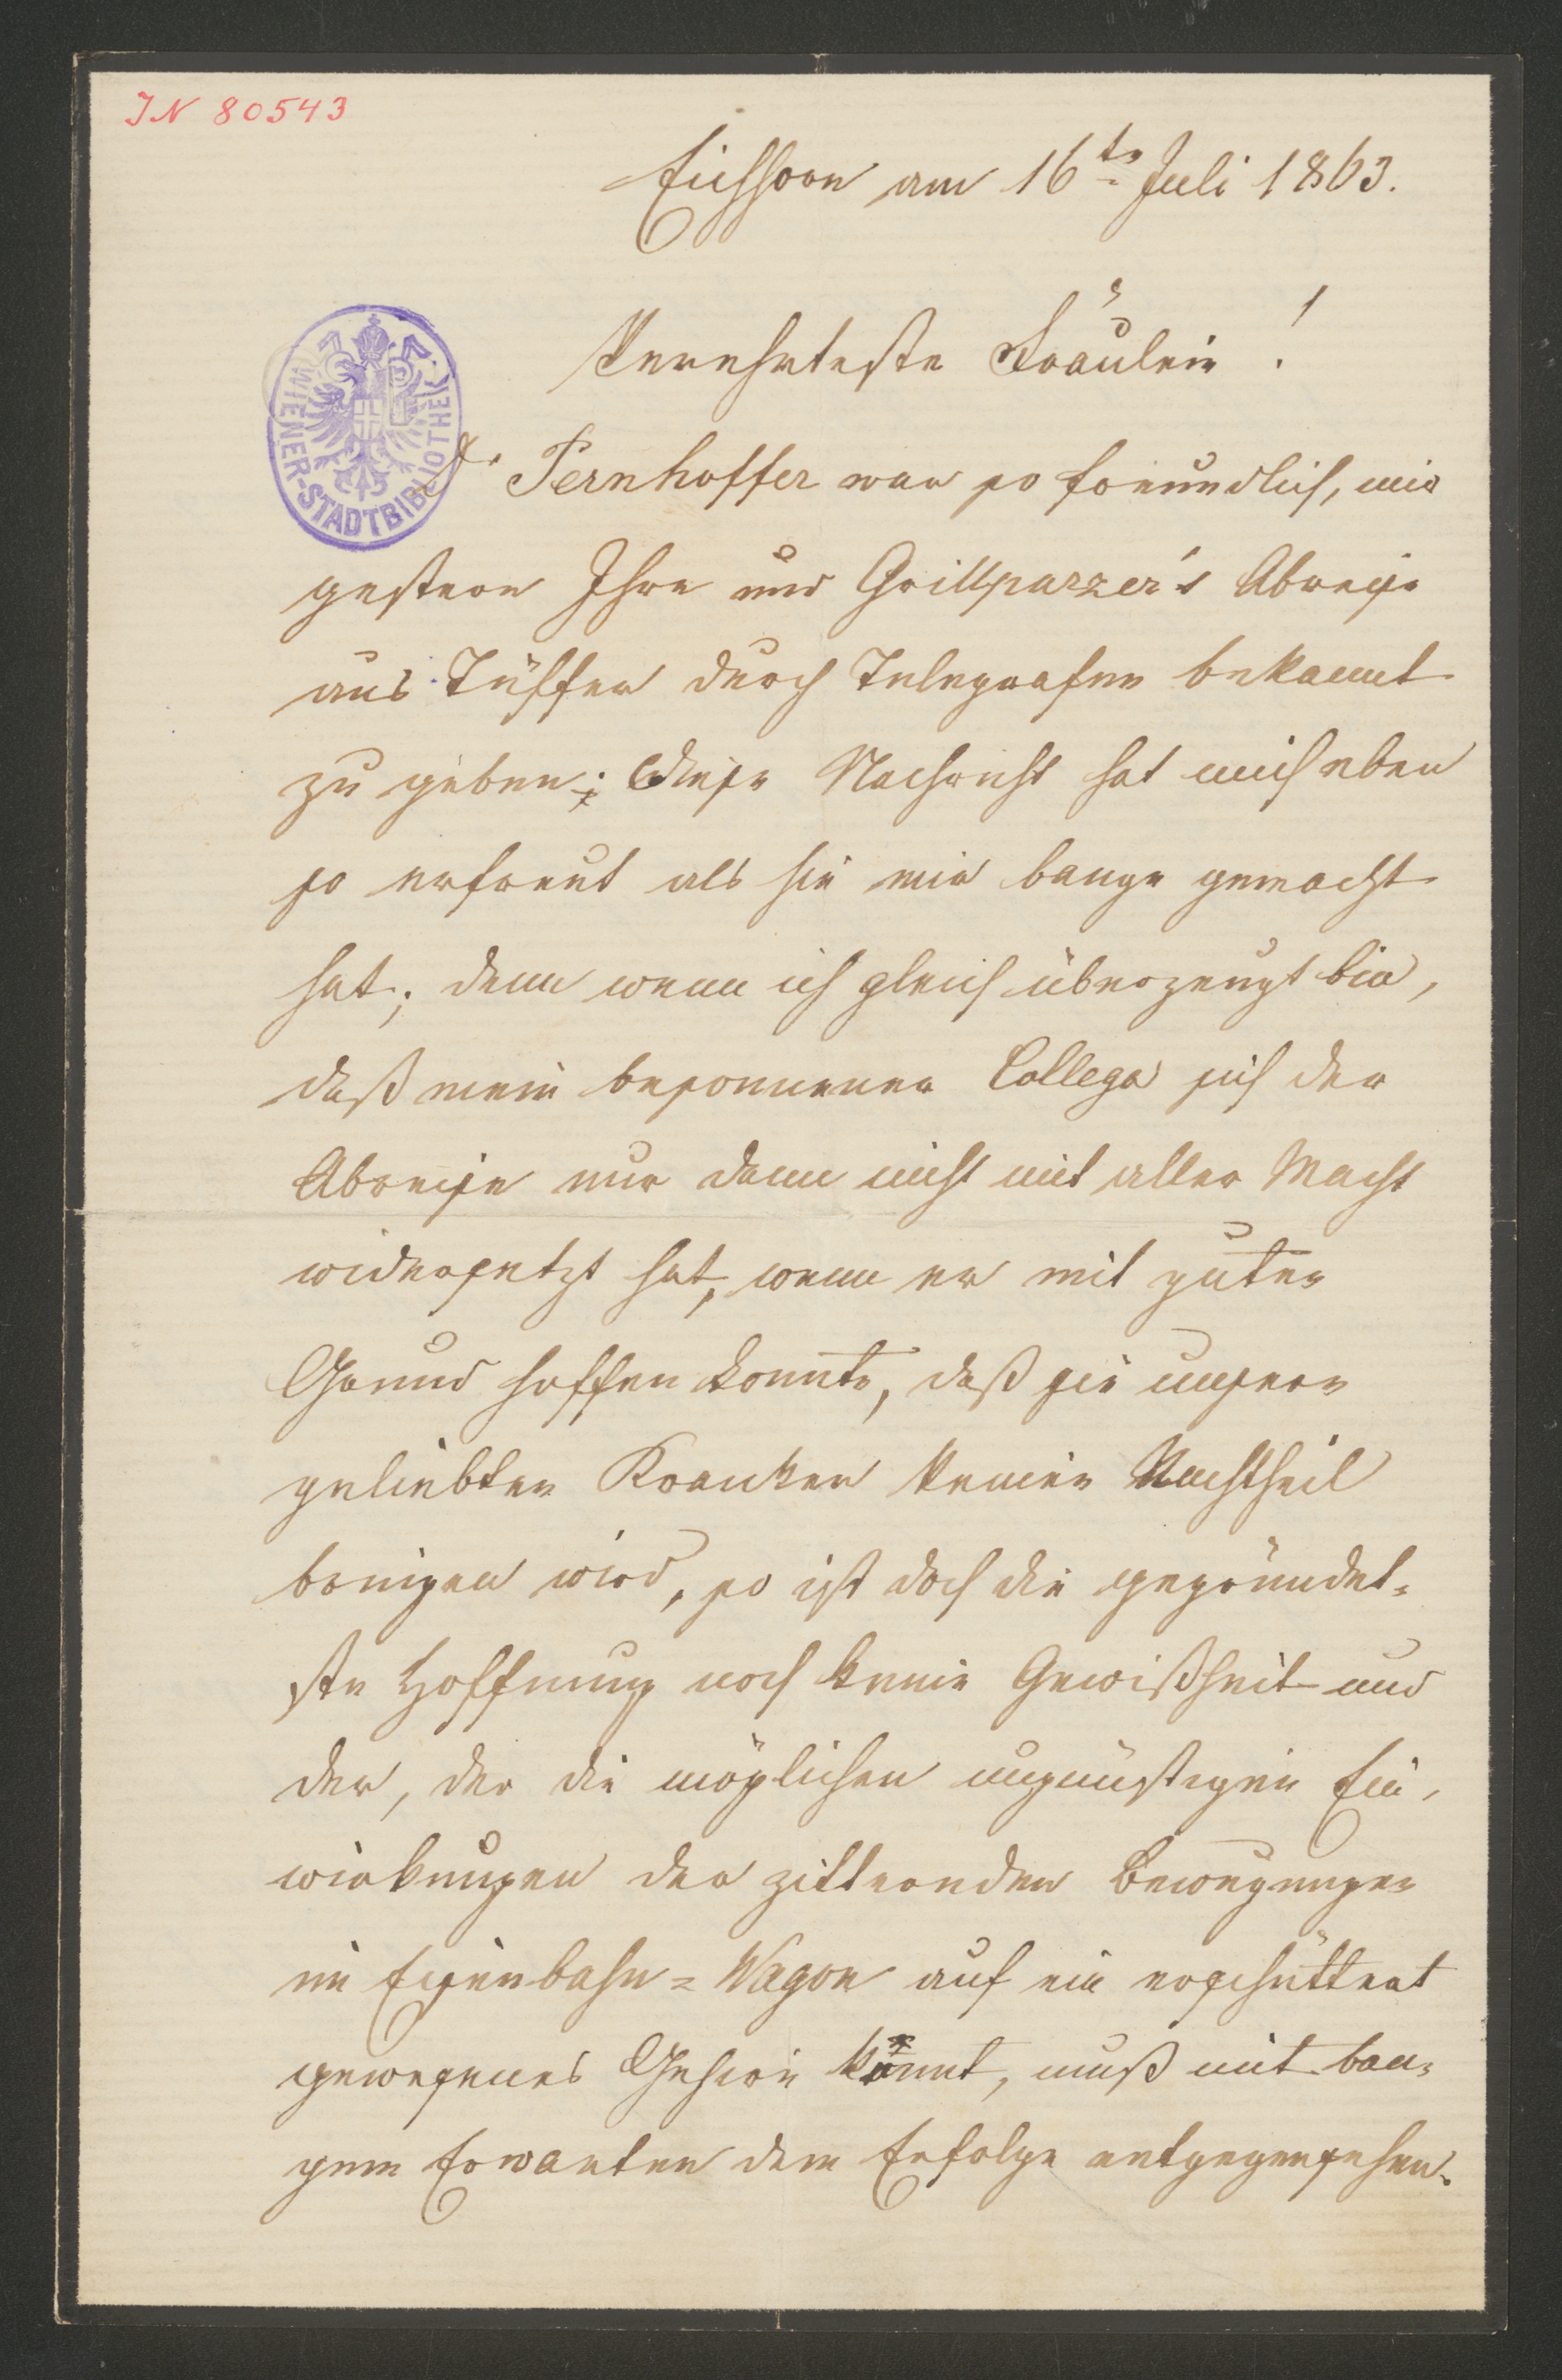 IN 80543
Eichhorn am 16te Juli 1863.
Verehrteste Fräulein!
WIENER-STADTBIBLIOTHEK
Dr Pernhoffer war so freundlich, mir
gestern Ihre und Grillparzer's Abreise
aus Tüffer durch Telegrafen bekannt
zu geben; diese Nachricht hat mich eben
so erfreut als sie mir bange gemacht
hat; denn wenn ich gleich überzeugt bin,
daß mein besonnener Collega sich der
Abreise nur dann nicht mit aller Macht
widersetzt hat, wenn er mit guten
Grund hoffen konnte, daß sie unsern
geliebten Kranken keinen Nachtheil
bringen wird, so ist doch die gegründet-
ste Hoffnung noch keine Gewißheit und
der, der die möglichen ungünstigen Ein-
wirkungen der zitternden Bewegungen
im Eisenbahn-Wagon auf ein erschüttert
gewesenes Gehirn kennt, muß mit ban-
gem Erwarten dem Erfolge entgegensehen.